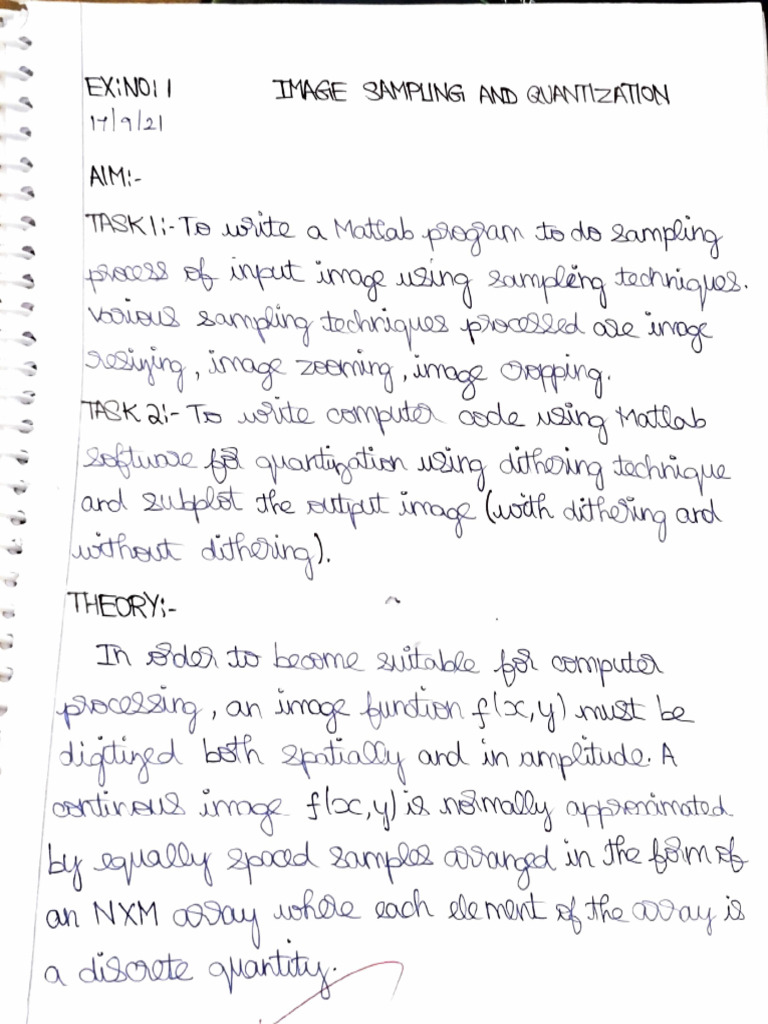 EX:NO: 1 IMAGE SAMPLING AND QUANTIZATION
17/9/21
AIM:-
TASK 1:- To write a Matlab program to do sampling
process of input image using sampling techniques.
Various sampling techniques processed are image
resizing, image zooming, image cropping.
TASK 2:- To write computer code using Matlab
software for quantization using dithering technique
and subplot the output image (with dithering and
without dithering).
THEORY:-
In order to become suitable for computer
processing, an image function f(x,y) must be
digitized both spatially and in amplitude. A
continous image f(x,y) is normally approximated
by equally spaced samples arranged in the form of
an NXM array where each element of the array is
a discrete quantity.